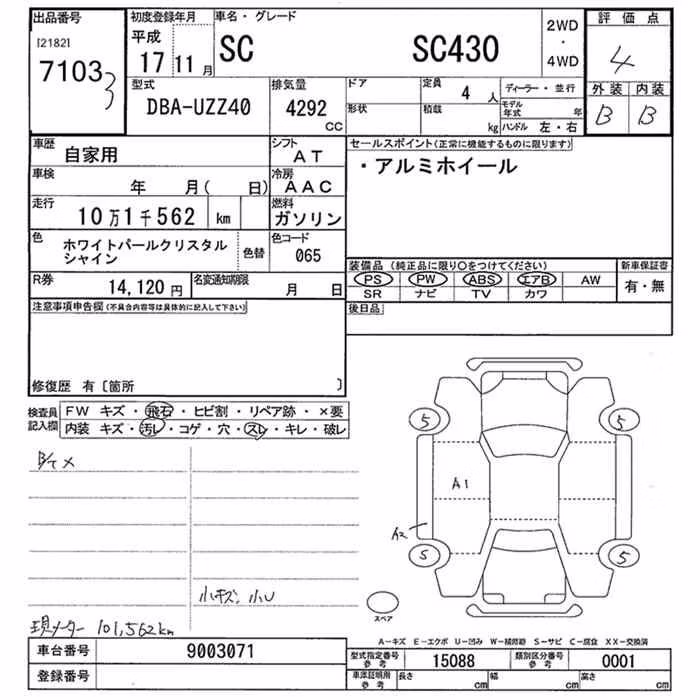 出品番号
[2182]
7103 3
初度登録年月
平成
17 11月
車名・グレード
SC SC430
2WD
・
4WD
評価点
4
外装 内装
B B
型式
DBA-UZZ40
排気量
4292
CC
ドア
形状
定員
4 人
積載
kg
ディーラー・並行
モデル年式 年
ハンドル 左・右
車歴
自家用
シフト
AT
車検
年 月( 日)
冷房
AAC
走行
10万1千562 km
燃料
ガソリン
色
ホワイトパールクリスタル
シャイン
色替
色コード
065
R券
14,120円
名変通知期限
月 日
セールスポイント(正常に機能するものに限ります)
・アルミホイール
装備品 (純正品に限り〇をつけてください)
PS PW ABS エアB AW
SR ナビ TV カワ
新車保証書
有・無
後日品
注意事項申告欄(不具合内容等は具体的に記入して下さい)
修復歴 有〔箇所 〕
検査員
記入欄
FW キズ・飛石・ヒビ割・リペア跡・×要
内装 キズ・汚レ・コゲ・穴・スレ・キレ・破レ
小キズ、小U
現メーター 101,562km
5 5
A1
A2
5 5
スペア
A-キズ E-エクボ U-凹み W-補修跡 S-サビ C-腐食 XX-交換済
車台番号
9003071
登録番号
型式指定番号
参考
15088
類別区分番号
参考
0001
車庫証明用
参考
長さ cm
幅 cm
高さ cm